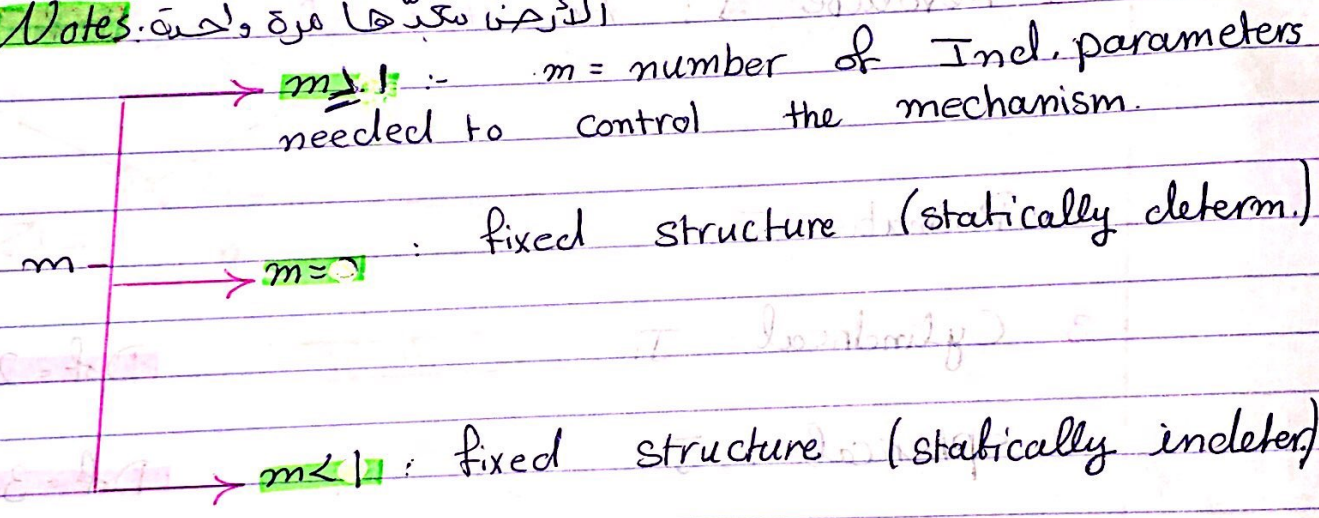 Notes: الأرض بعدّها مرة واحدة.
m ≥ 1 :- m = number of Ind. parameters
needed to control the mechanism.
m
m = 0 : fixed structure (statically determ.)
m < 1 : fixed structure (statically indeter.)